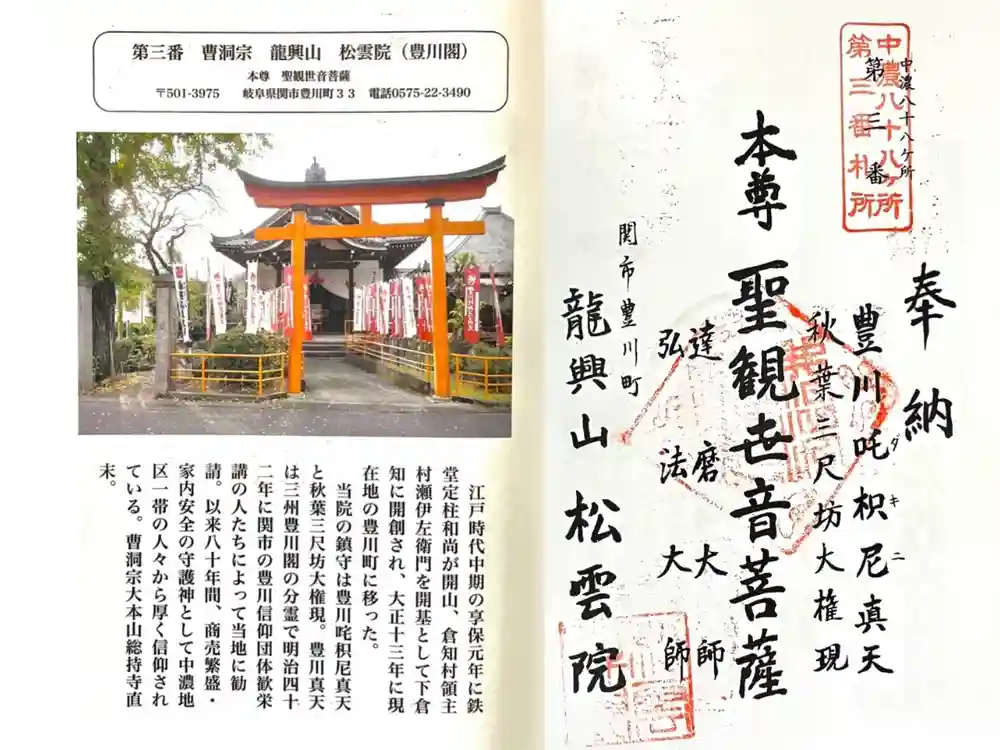 第三番　曹洞宗　龍興山　松雲院（豊川閣）
本尊　聖観世音菩薩
〒501-3975　岐阜県関市豊川町３３　電話0575-22-3490
江戸時代中期の享保元年に鉄
堂定柱和尚が開山、倉知村領主
村瀬伊左衛門を開基として下倉
知に開創され、大正十三年に現
在地の豊川町に移った。
当院の鎮守は豊川咤枳尼真天
と秋葉三尺坊大権現。豊川真天
は三州豊川閣の分霊で明治四十
二年に関市の豊川信仰団体歓栄
講の人たちによって当地に勧
請。以来八十年間、商売繁盛・
家内安全の守護神として中濃地
区一帯の人々から厚く信仰され
ている。曹洞宗大本山総持寺直
末。
中濃八十八ヶ所
第三番札所
中濃八十八ケ所
第三番
奉納
豊川吒枳尼真天
ダキニ
秋葉三尺坊大権現
本尊 聖観世音菩薩
達磨大師
弘法大師
関市豊川町
龍興山 松雲院